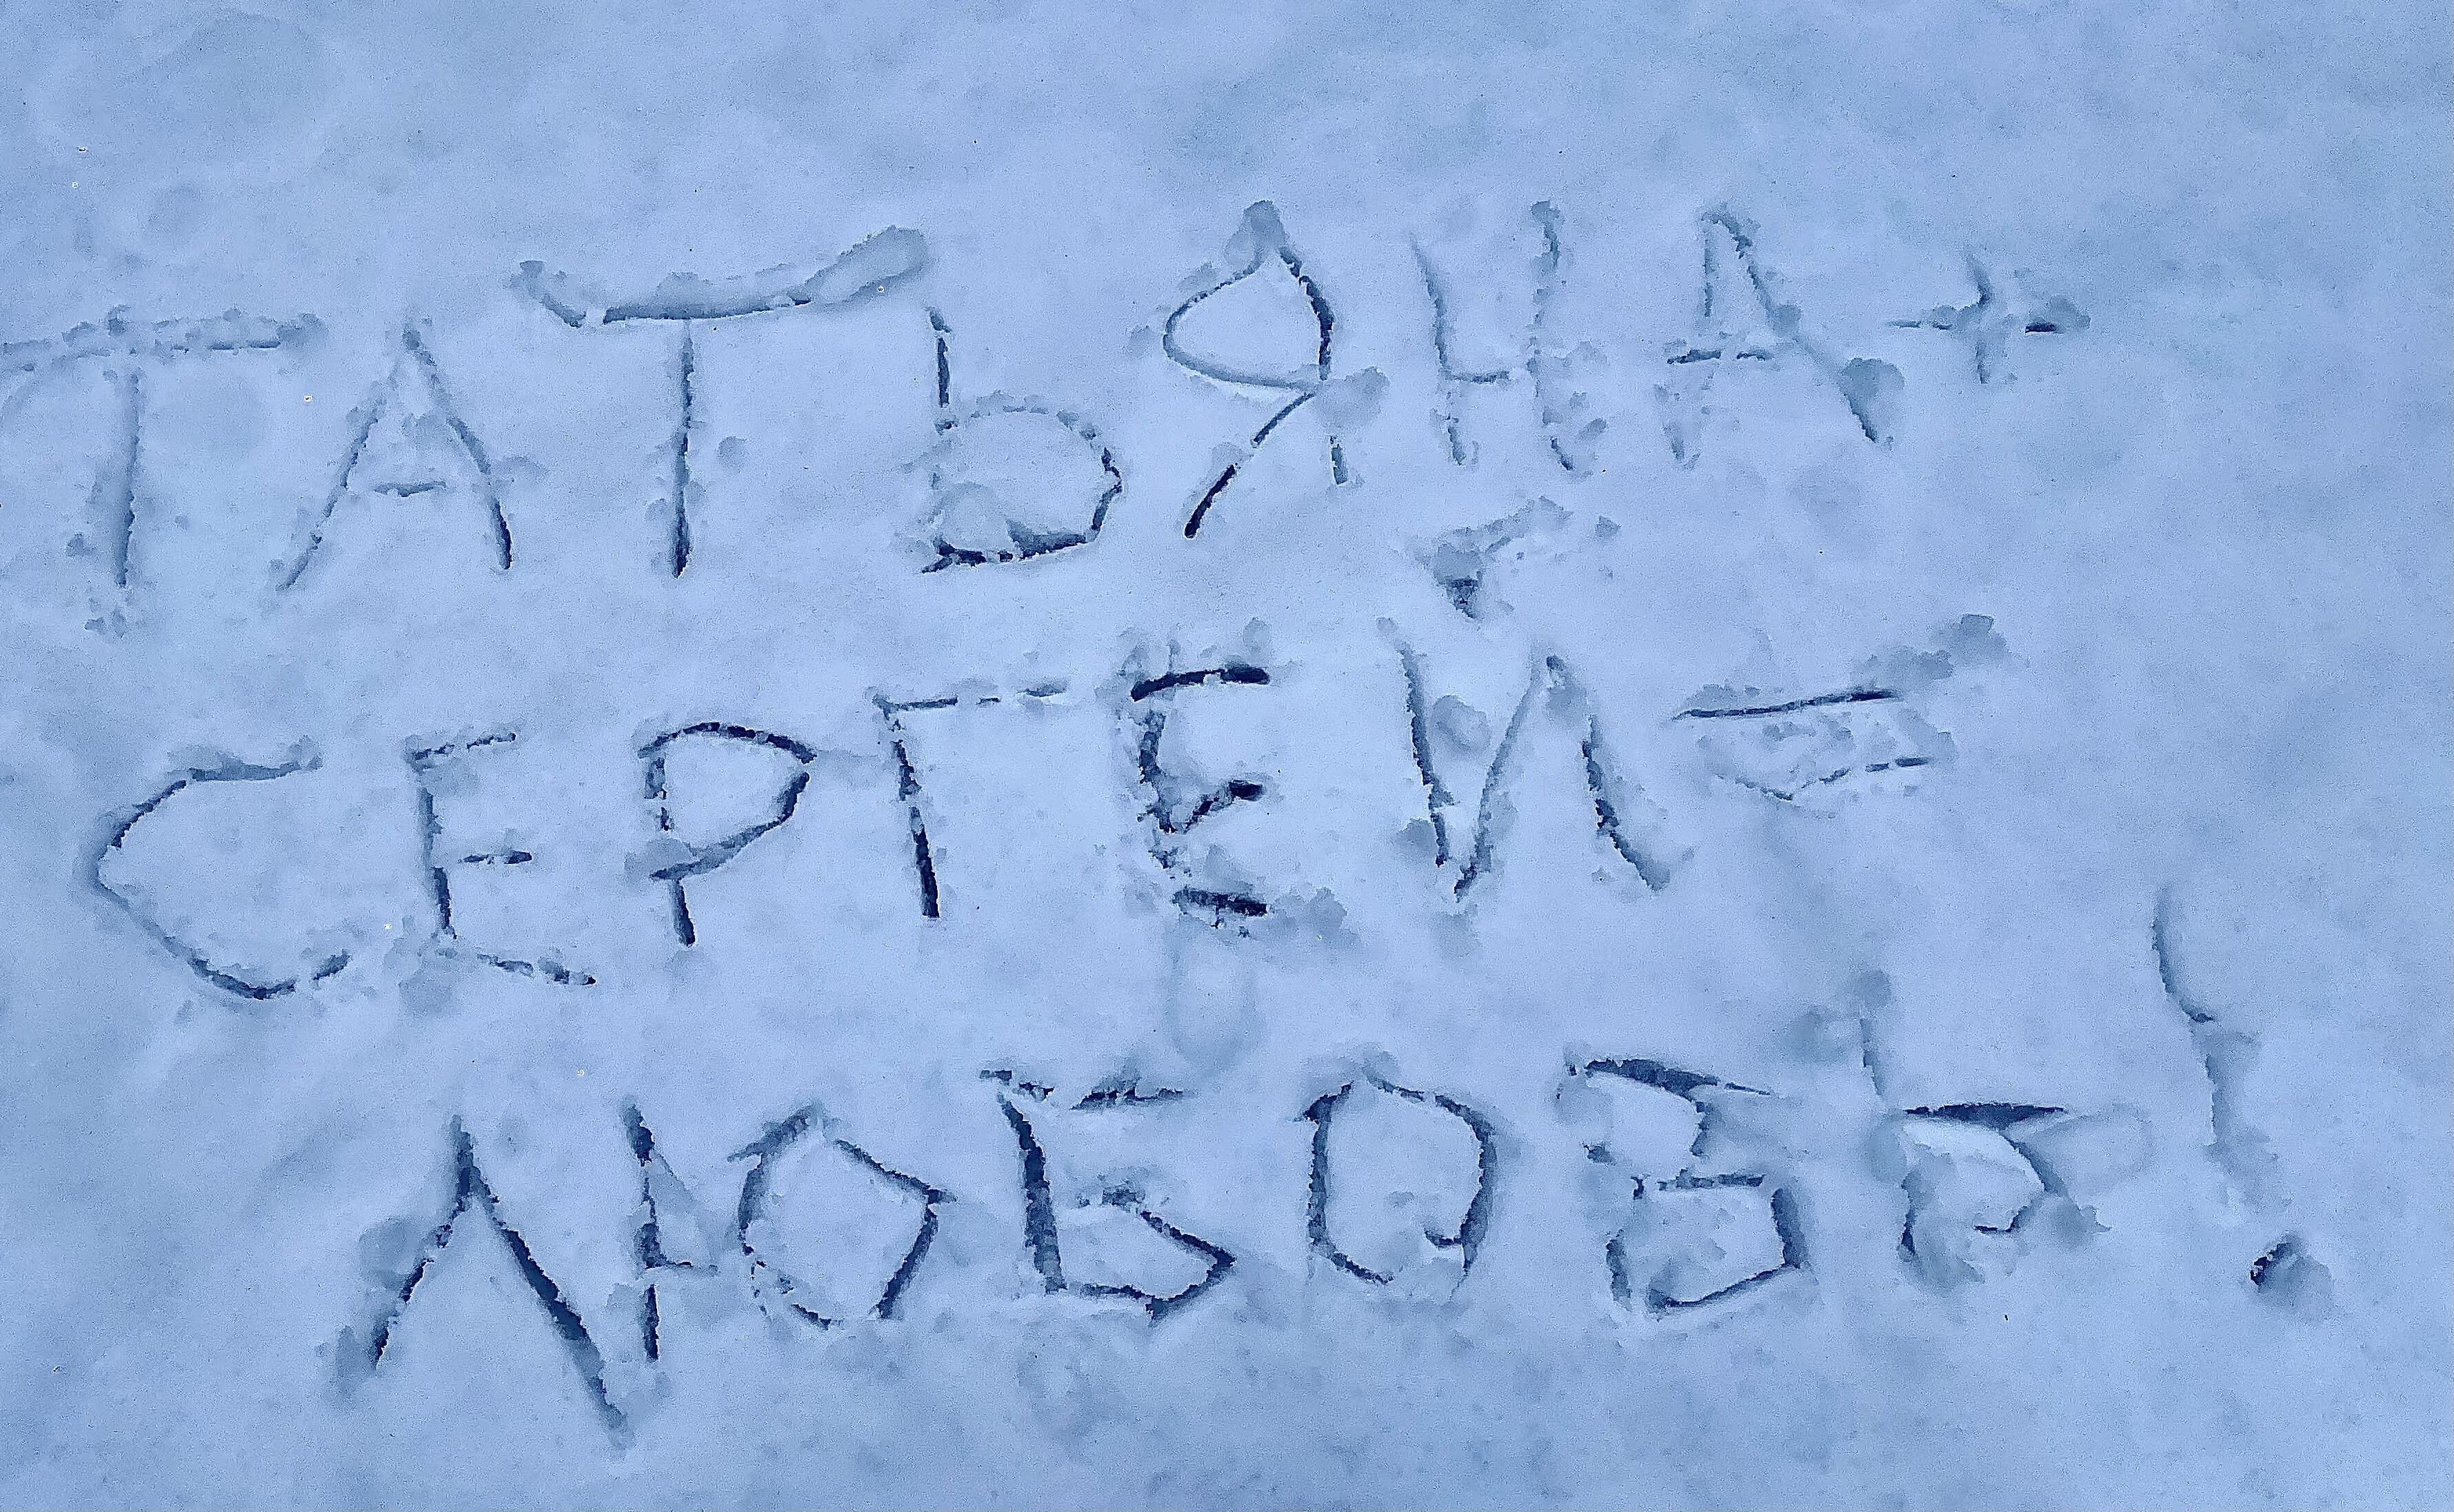 ТАТЬЯНА +
СЕРГЕЙ =
ЛЮБОВЬ!